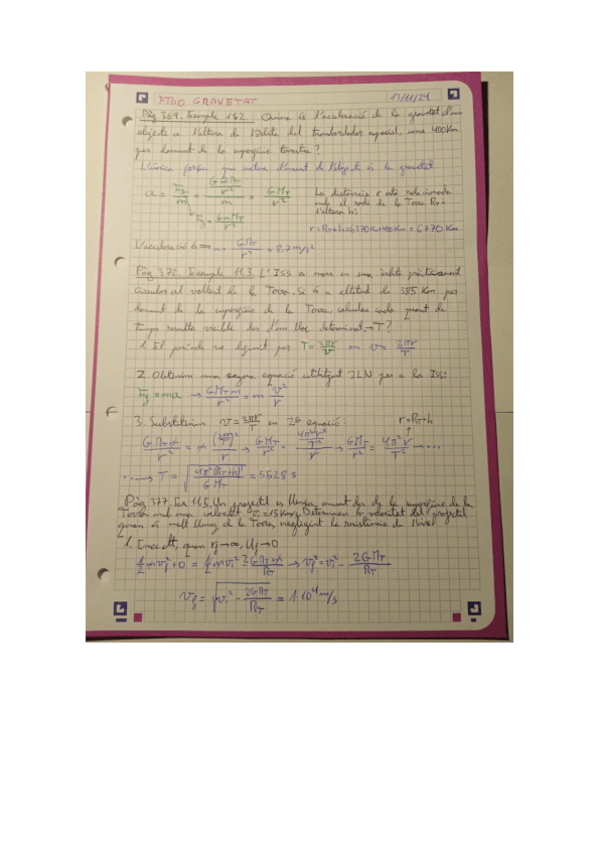 FITXO GRAVETAT 17/11/24
Pàg 369. Exemple 11.2. Quina és l'acceleració de la gravetat d'un
objecte a l'altura de l'òrbita del transbordador espacial, uns 400 Km
per damunt de la superfície terrestre?
L'única força que actua damunt de l'objecte és la gravetat
a = Fg/m = (G m MT/r²)/m = G MT/r²
Fg = G m MT/r²
La distància r està relacionada
amb el radi de la Terra RT i
l'altura h:
r = RT + h = 6370 Km + 400 Km = 6770 Km
L'acceleració és ⇒ a = G MT/r² = 8,7 m/s²
Pàg 372. Exemple 11.3. L'ISS es mou en una òrbita pràcticament
circular al voltant de la Terra. Si és a altitud de 385 Km per
damunt de la superfície de la Terra calculeu cada quant de
temps resulta visible des d'un lloc determinat. → T?
1. El període ve per T = 2πr/v on v = 2πr/T
2. Obtenim una segona equació utilitzant 2LN per a la ISS:
Fg = ma → G MT m/r² = m v²/r
3. Substituim v = 2πr/T en 2ª equació: r = RT + h
G MT m/r² = m (2πr/T)²/r → G MT/r² = (4π²r²/T²)/r → G MT/r² = 4π² r/T² → ...
...→ T = √(4π²(RT+h)³/G MT) = 5528 s
Pàg 377. Ex 11.5. Un projectil es llança amunt des de la superfície de la
Terra amb una velocitat vi = 15 Km/s. Determineu la velocitat del projectil
quan és molt lluny de la Terra, negligint la resistència de l'aire
1. quan rf → ∞, Uf → 0
½ m vf² + 0 = ½ m vi² - G MT m/RT → vf² = vi² - 2G MT/RT
vf = √(vi² - 2G MT/RT) = 1·10⁴ m/s